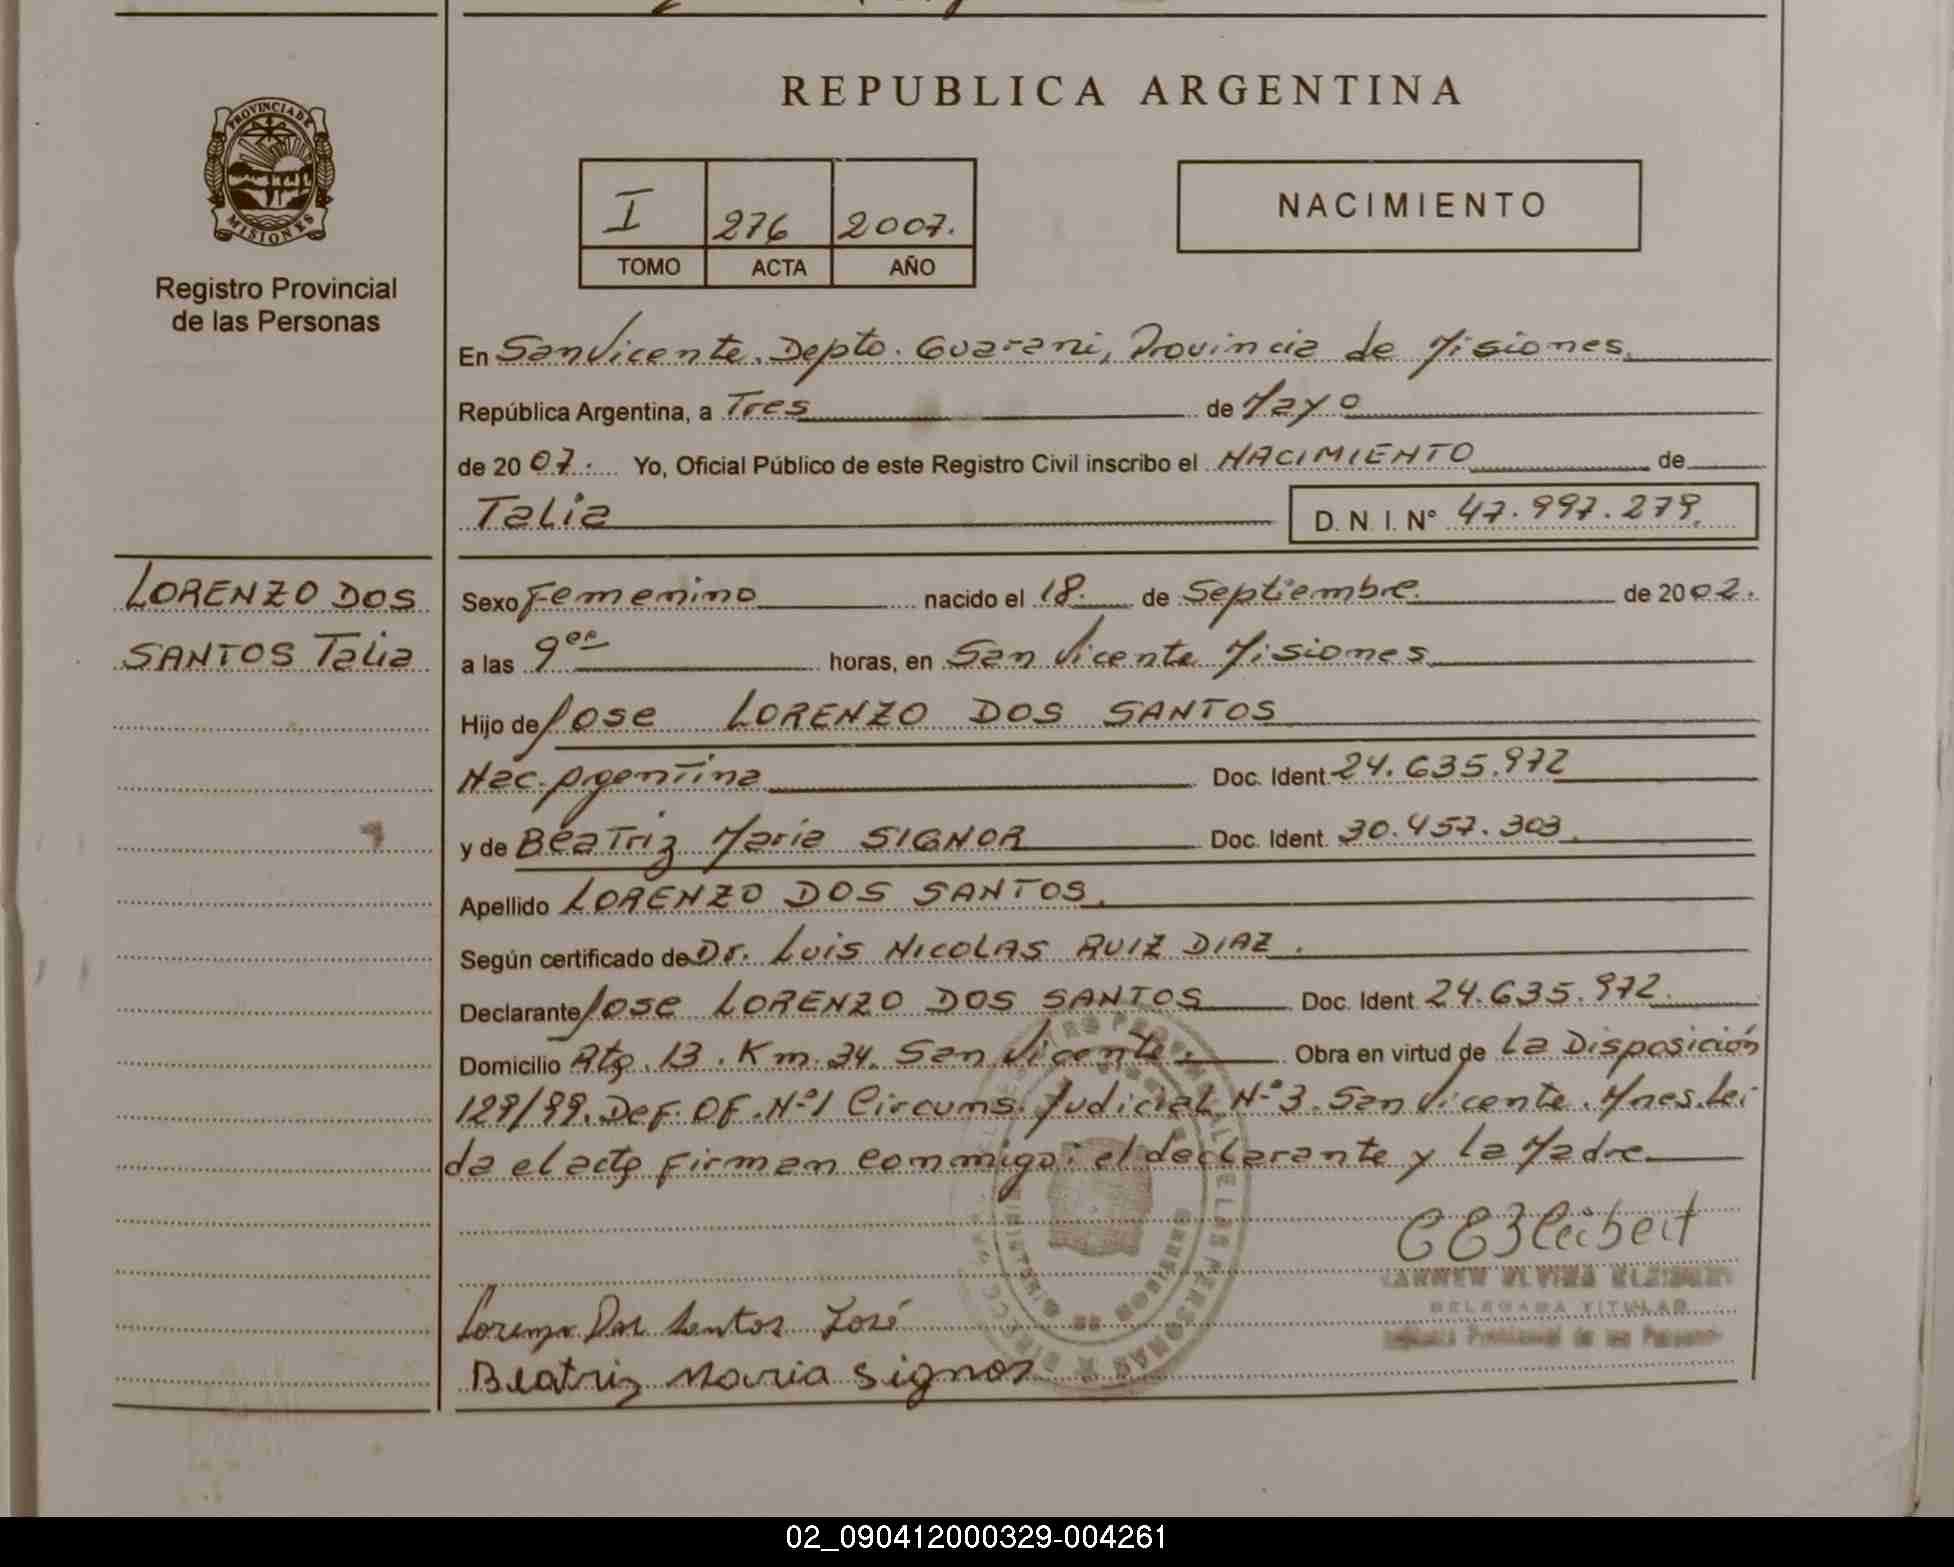 REPUBLICA ARGENTINA
PROVINCIA DE
MISIONES
Registro Provincial
de las Personas
I 276 2007.
TOMO ACTA AÑO
NACIMIENTO
En San Vicente. Depto. Guarani, Provincia de Misiones
República Argentina, a Tres de Mayo
de 2007. Yo, Oficial Público de este Registro Civil inscribo el NACIMIENTO de
Talia D. N. I. N° 47.997.279
LORENZO DOS
SANTOS Talia
Sexo Femenino nacido el 18. de Septiembre. de 2002.
a las 9 horas, en San Vicente Misiones
Hijo de Jose LORENZO DOS SANTOS
Nac. Argentina Doc. Ident. 24.635.972
y de Beatriz Maria SIGNOR Doc. Ident. 30.457.303
Apellido LORENZO DOS SANTOS.
Según certificado de Dr. Luis NICOLAS RUIZ DIAZ.
Declarante Jose LORENZO DOS SANTOS Doc. Ident. 24.635.972.
Domicilio Rta. 13. Km. 34. San Vicente. Obra en virtud de La Disposición
129/99. Def. OF. Nº1 Circuns. Judicial Nº3. San Vicente. Mnes. Lei
da el acta firman conmigo: el declarante y la Madre
CEKleibert
DELEGADA TITULAR
Lorenzo Dos Santos José
Beatriz Maria Signor
02_090412000329-004261